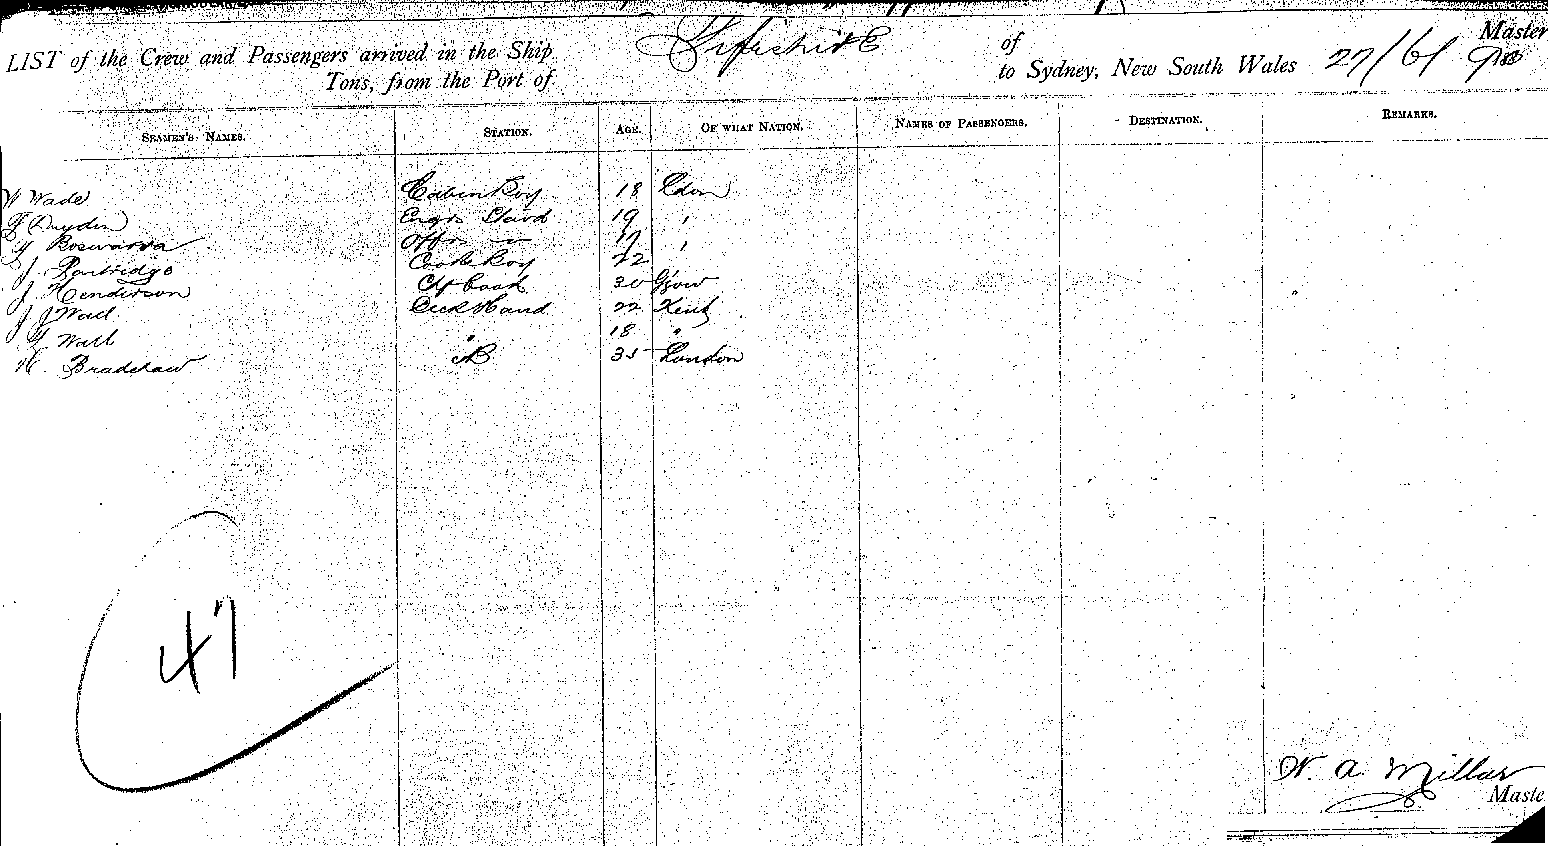 LIST of the Crew and Passengers arrived in the Ship Fifeshire of Master
Tons, from the Port of to Sydney, New South Wales 27/6/
SEAMEN'S NAMES. STATION. AGE. OF WHAT NATION. NAMES OF PASSENGERS. DESTINATION. REMARKS.
W Wade Cabin Boy 18 Ldon
F Dryden Engrs Stewd 19 "
Offrs "
J. Partridge Cooks Boy 22
J. Henderson Ch Cook 30 Gsow
J J Wall Deck Hand 22 Kent
Wall " 18 "
H. Bradshaw AB 35 London
47
W. A Millar
Maste